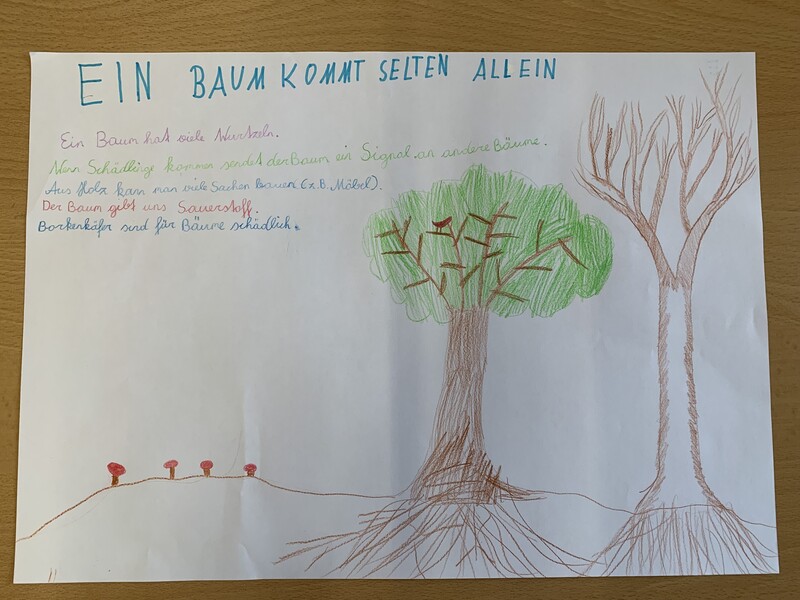 EIN BAUM KOMMT SELTEN ALLEIN
Ein Baum hat viele Wurtzeln.
Wenn Schädlinge kommen sendet der Baum ein Signal an andere Bäume.
Aus Holz kann man viele Sachen bauen (z.B. Möbel).
Der Baum gibt uns Sauerstoff.
Borkenkäfer sind für Bäume schädlich.